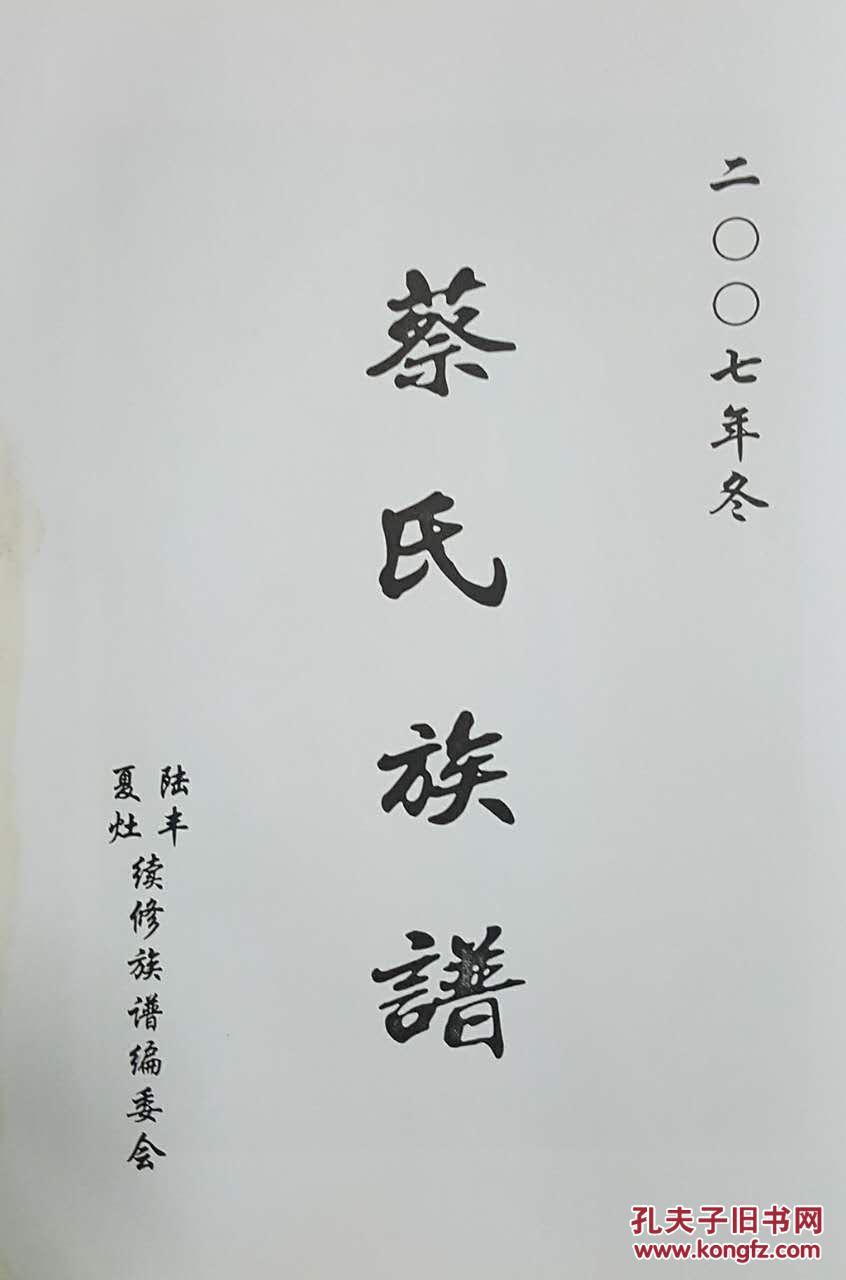 二〇〇七年冬
蔡氏族譜
陆丰
夏灶
续修族谱编委会
孔夫子旧书网
www.kongfz.com